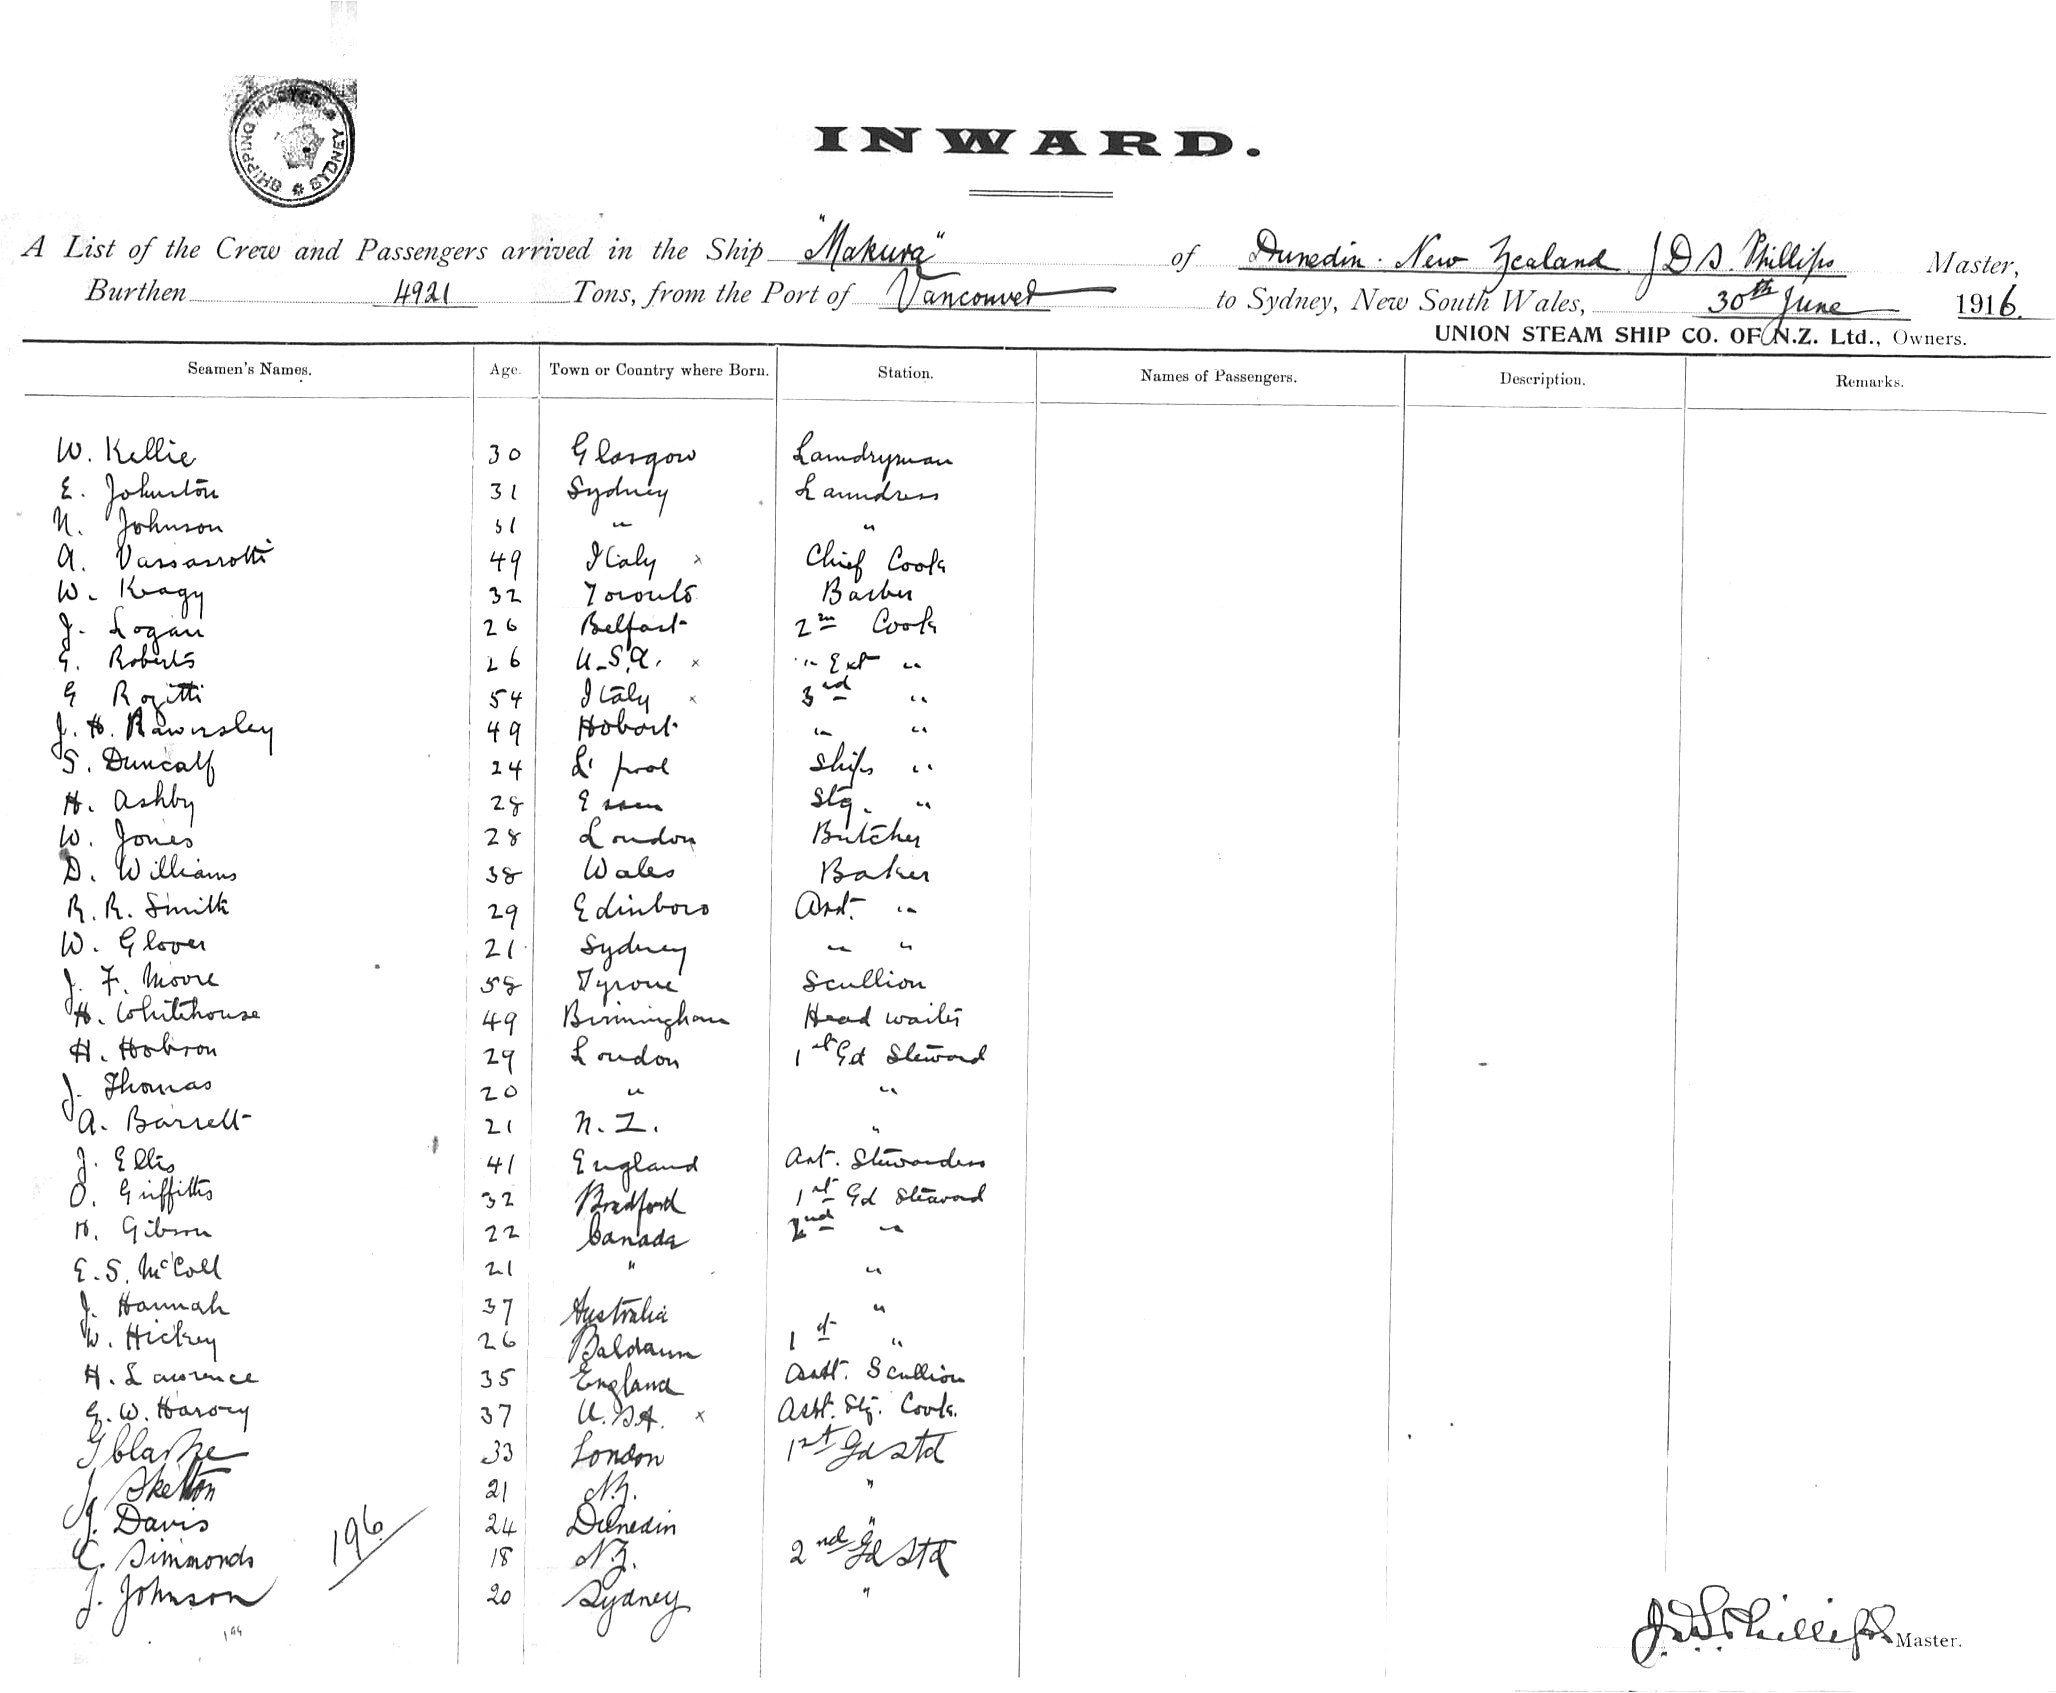 SHIPPING MASTER'S SYDNEY
INWARD.
A List of the Crew and Passengers arrived in the Ship "Makura" of Dunedin. New Zealand J D S. Phillips Master,
Burthen 4921 Tons, from the Port of Vancouver to Sydney, New South Wales, 30th June 1916.
UNION STEAM SHIP CO. OF N.Z. Ltd., Owners.
Seamen's Names. Age. Town or Country where Born. Station. Names of Passengers. Description. Remarks.
W. Kellie 30 Glasgow Laundryman
E. Johnston 31 Sydney Laundress
N. Johnson 31 " "
A. Vassarrotti 49 Italy x Chief Cook
W. Kragy 32 Toronto Barber
J. Logan 26 Belfast 2nd Cook
G. Roberts 26 U.S.A. x " Ext "
G Rozitti 54 Italy x 3rd "
J. H. Rawnsley 49 Hobart " "
S. Duncalf 24 L'pool Ships "
H. Ashby 28 Essex Stg. "
W. Jones 28 London Butcher
D. Williams 38 Wales Baker
R. R. Smith 29 Edinboro Asst. "
W. Glover 21 Sydney " "
J. F. Moore 58 Tyrone Scullion
H. Whitehouse 49 Birmingham Head waiter
H. Hobson 29 London 1st Gd Steward
J. Thomas 20 " "
A. Barrett 21 N.Z. "
J. Ellis 41 England Ast. Stewardess
O. Griffiths 32 Bradford 1st Gd Steward
H. Gibson 22 Canada 2nd "
E. S. McColl 21 " "
J. Hannah 37 Australia "
W. Hickey 26 1st "
H. Lawrence 35 England Asst. Scullion
G. W. Harvey 37 U.S.A. x Asst. Stg. Cook.
G Clarke 33 London 1st Gd Std
J Skelton 21 N.Z. "
J. Davis 24 Dunedin "
C. Simmonds 18 N.Z. 2nd Gd Std
J. Johnson 20 Sydney "
196
J. D. S. Phillips Master.